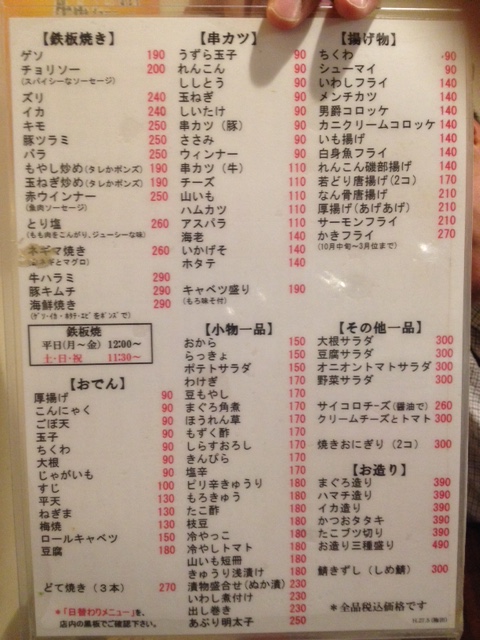 【鉄板焼き】
ゲソ 190
チョリソー 200
(スパイシーなソーセージ)
ズリ 240
イカ 240
キモ 250
豚ツラミ 250
バラ 250
もやし炒め(タレかポンズ) 190
玉ねぎ炒め(タレかポンズ) 190
赤ウインナー 250
(魚肉ソーセージ)
とり塩 260
(もも肉をこんがり、ジューシーな味)
ネギマ焼き 260
牛ハラミ 290
豚キムチ 290
海鮮焼き 290
(ゲソ・イカ・ホタテ・エビをポンズで)
鉄板焼
平日(月～金) 12:00～
土・日・祝 11:30～
【おでん】
厚揚げ 90
こんにゃく 90
ごぼ天 90
玉子 90
ちくわ 90
大根 90
じゃがいも 90
すじ 100
平天 130
ねぎま 130
梅焼 130
ロールキャベツ 150
豆腐 180
どて焼き（３本） 270
＊「日替わりメニュー」を、
店内の黒板でご確認下さい。
【串カツ】
うずら玉子 90
れんこん 90
ししとう 90
玉ねぎ 90
しいたけ 90
串カツ（豚） 90
ささみ 90
ウィンナー 90
串カツ（牛） 110
チーズ 110
山いも 110
ハムカツ 110
アスパラ 110
海老 140
いかげそ 140
ホタテ 140
キャベツ盛り 190
(もろ味そ付)
【小物一品】
おから 150
らっきょ 150
ポテトサラダ 150
わけぎ 170
豆もやし 170
まぐろ角煮 170
ほうれん草 170
もずく酢 170
しらすおろし 170
きんぴら 170
塩辛 170
ピリ辛きゅうり 180
もろきゅう 180
たこ酢 180
枝豆 180
冷やっこ 180
冷やしトマト 180
山いも短冊 180
きゅうり浅漬け 180
漬物盛合せ(ぬか漬) 230
いわし煮付け 230
出し巻き 230
あぶり明太子 250
【揚げ物】
ちくわ 90
シューマイ 90
いわしフライ 140
メンチカツ 140
男爵コロッケ 140
カニクリームコロッケ 140
いも揚げ 140
白身魚フライ 140
れんこん磯部揚げ 140
若どり唐揚げ(2コ) 170
なん骨唐揚げ 210
厚揚げ(あげあげ) 210
サーモンフライ 210
かきフライ 270
(10月中旬～3月位まで)
【その他一品】
大根サラダ 300
豆腐サラダ 300
オニオントマトサラダ 300
野菜サラダ 300
サイコロチーズ(醤油で) 260
クリームチーズとトマト 300
焼きおにぎり（2コ） 300
【お造り】
まぐろ造り 390
ハマチ造り 390
イカ造り 390
かつおタタキ 390
たこブツ切り 390
お造り三種盛り 490
鯖きずし（しめ鯖） 300
＊全品税込価格です